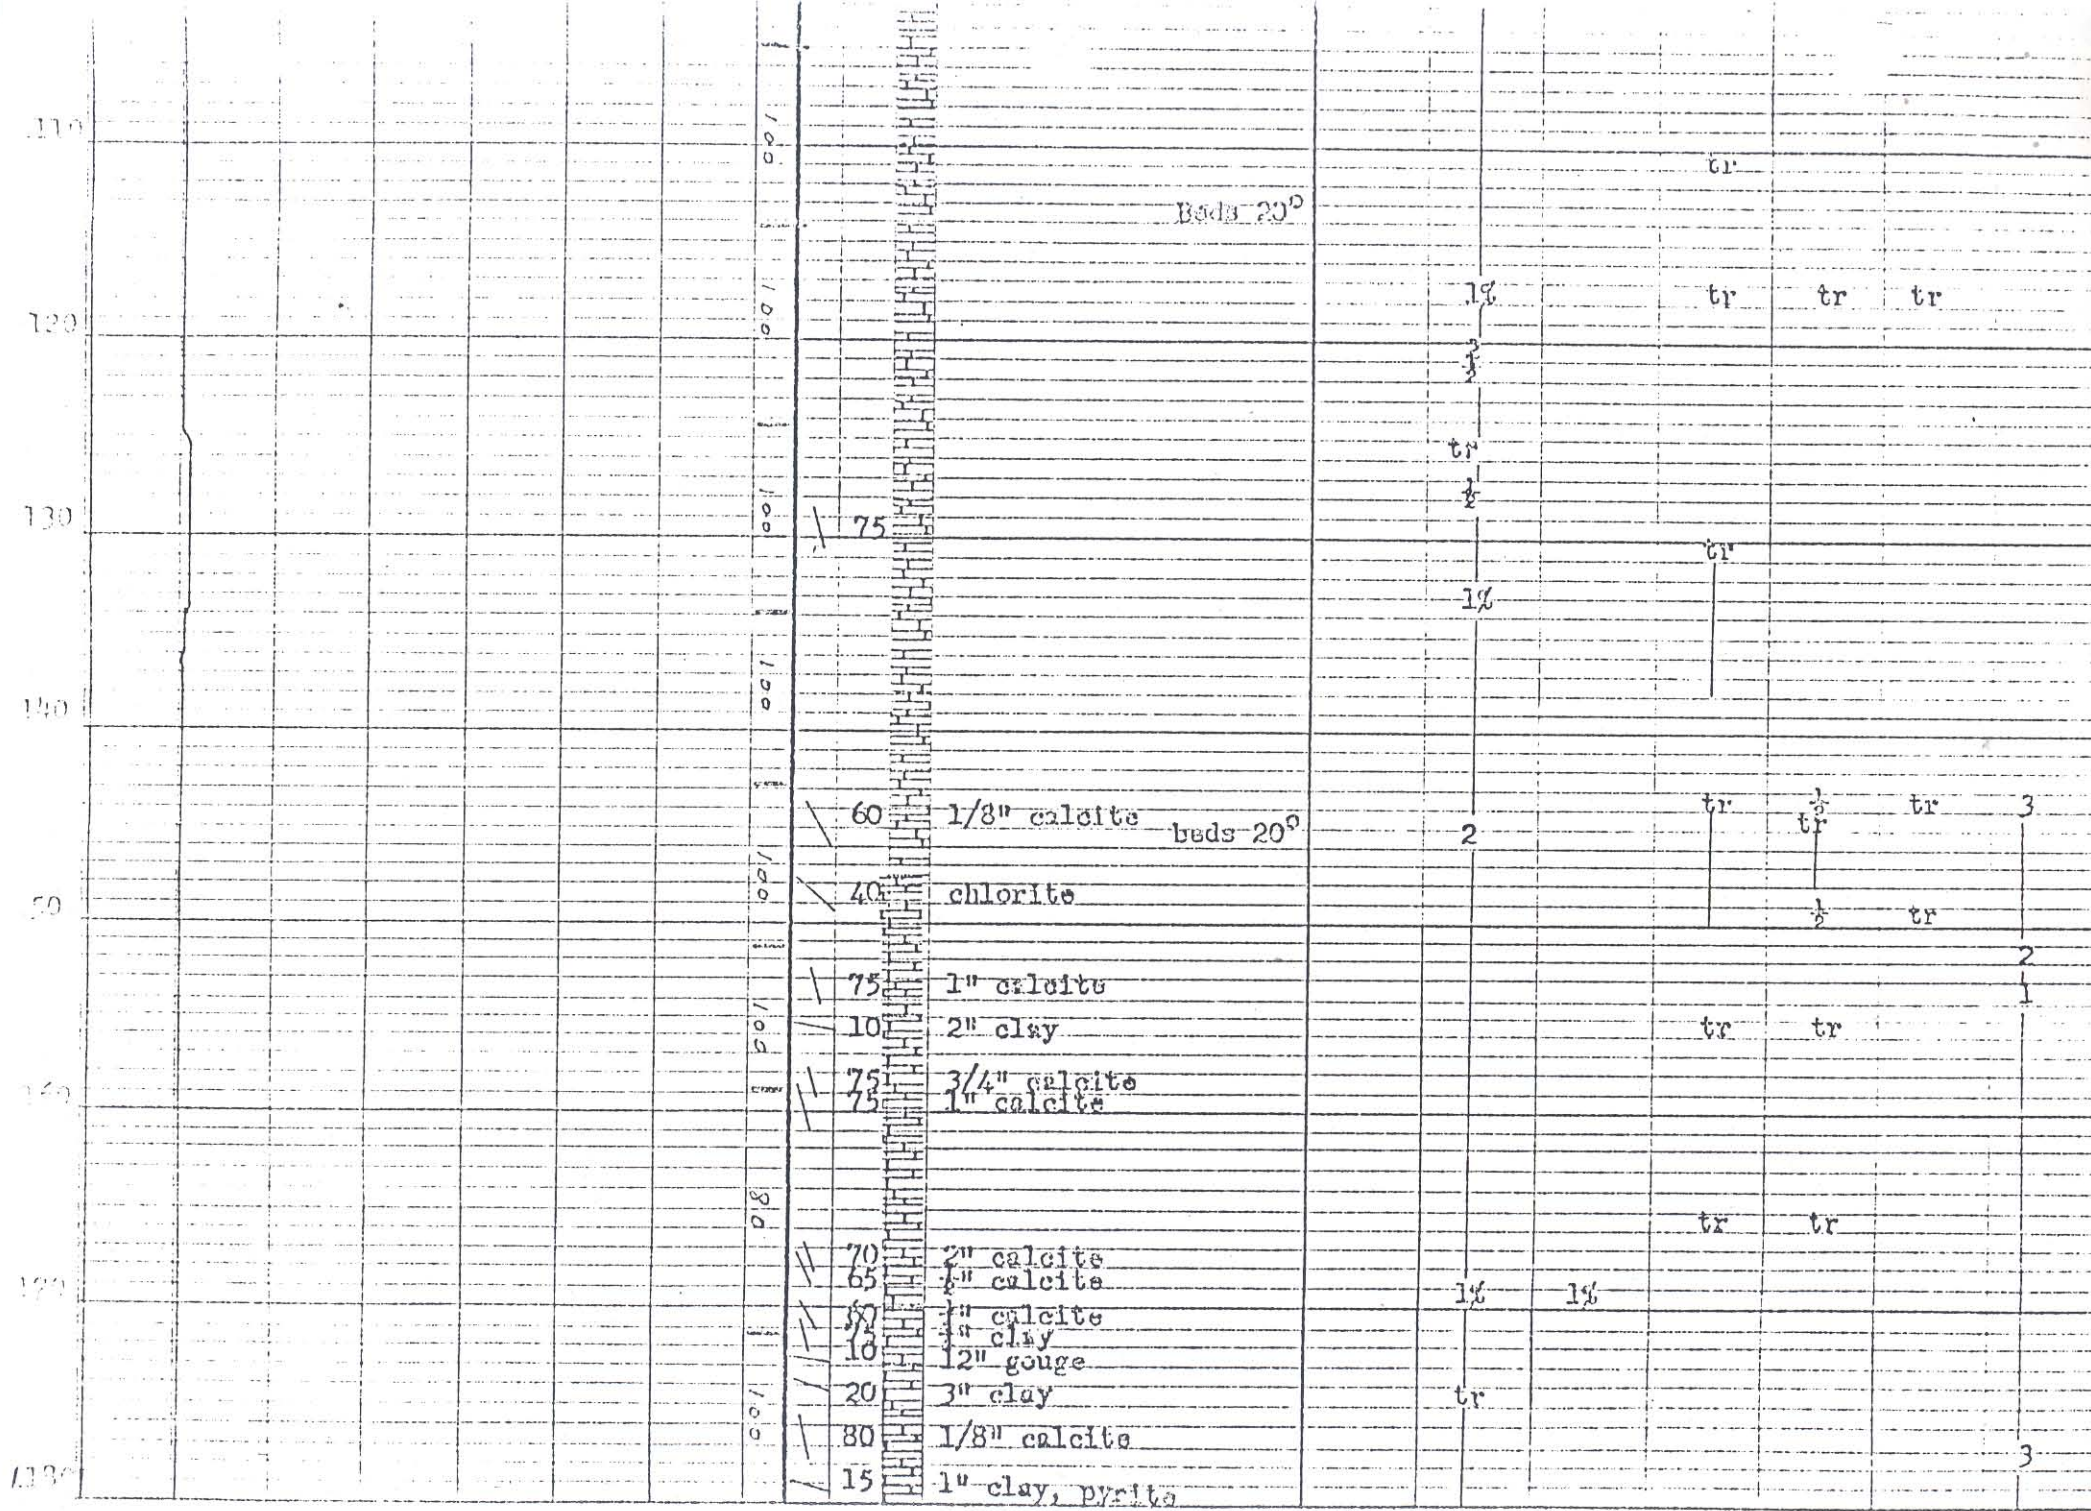 110
100
tr
Beds 20°
100
1% tr tr tr
120
½
tr
100
½
130
75
tr
1%
100
140
60 1/8" calcite
beds 20°
2
tr ½ tr 3
tr
100
40 chlorite
½ tr
50
2
75 1" calcite
1
100
10 2" clay
tr tr
75 3/4" calcite
75 1" calcite
160
80
tr tr
70 2" calcite
65 ½" calcite
1% 1%
calcite
clay
10 12" gouge
20 3" clay
tr
100
80 1/8" calcite
3
15 1" clay, pyrite